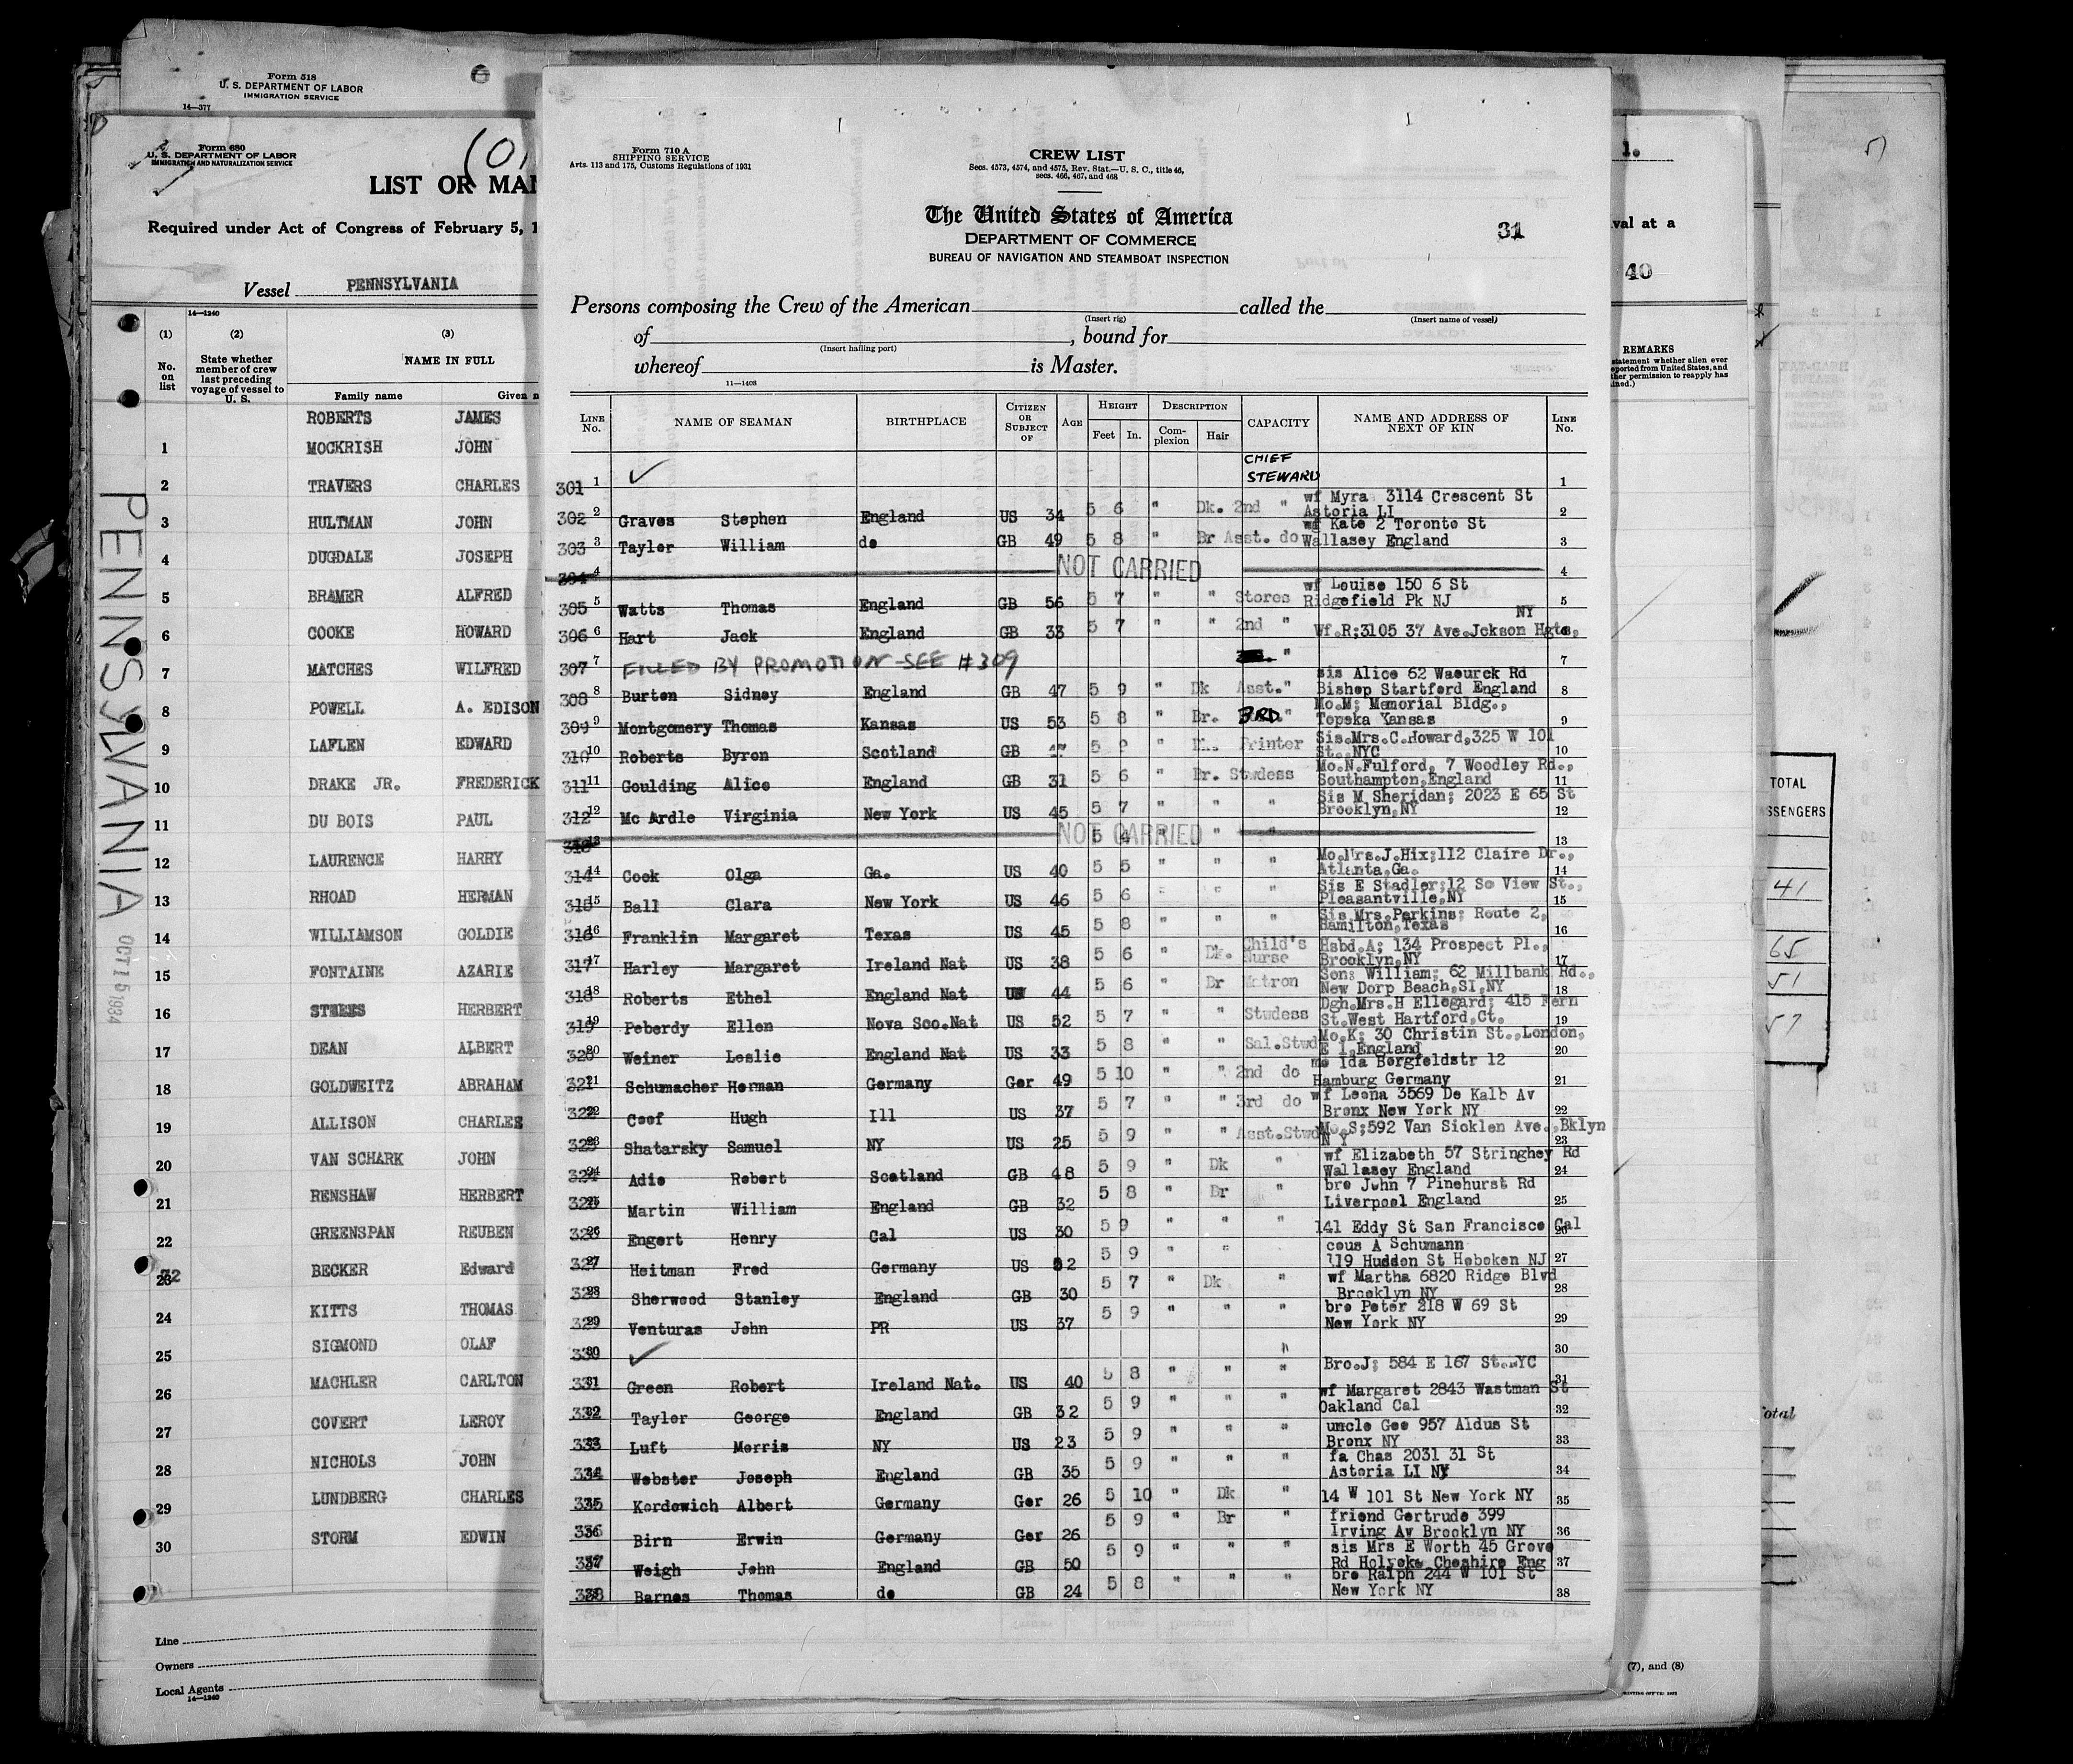 Form 518
U. S. DEPARTMENT OF LABOR
IMMIGRATION SERVICE
14—377
Form 680
U. S. DEPARTMENT OF LABOR
IMMIGRATION AND NATURALIZATION SERVICE
LIST OR MA
Required under Act of Congress of February 5, 1
Vessel PENNSYLVANIA
14—1240
(1) (2) (3)
No. on list
State whether member of crew last preceding voyage of vessel to U. S.
NAME IN FULL
Family name Given n
ROBERTS JAMES
1 MOCKRISH JOHN
2 TRAVERS CHARLES
3 HULTMAN JOHN
4 DUGDALE JOSEPH
5 BRAMER ALFRED
6 COOKE HOWARD
7 MATCHES WILFRED
8 POWELL A. EDISON
9 LAFLEN EDWARD
10 DRAKE JR. FREDERICK
11 DU BOIS PAUL
12 LAURENCE HARRY
13 RHOAD HERMAN
14 WILLIAMSON GOLDIE
15 FONTAINE AZARIE
16 STREES HERBERT
17 DEAN ALBERT
18 GOLDWEITZ ABRAHAM
19 ALLISON CHARLES
20 VAN SCHARK JOHN
21 RENSHAW HERBERT
22 GREENSPAN REUBEN
23 BECKER Edward
24 KITTS THOMAS
25 SIGMOND OLAF
26 MACHLER CARLTON
27 COVERT LEROY
28 NICHOLS JOHN
29 LUNDBERG CHARLES
30 STORM EDWIN
Line
Owners
Local Agents
14—1240
PENNSYLVANIA
OCT 15 1934
Form 710 A
SHIPPING SERVICE
Arts. 113 and 175, Customs Regulations of 1931
CREW LIST
Secs. 4573, 4574, and 4575, Rev. Stat.—U. S. C., title 46,
secs. 466, 467, and 468
The United States of America
DEPARTMENT OF COMMERCE
BUREAU OF NAVIGATION AND STEAMBOAT INSPECTION
31
Persons composing the Crew of the American called the
(Insert rig) (Insert name of vessel)
of , bound for
(Insert hailing port)
whereof is Master.
11—1408
LINE No. NAME OF SEAMAN BIRTHPLACE CITIZEN OR SUBJECT OF AGE HEIGHT Feet In. DESCRIPTION Complexion Hair CAPACITY NAME AND ADDRESS OF NEXT OF KIN LINE No.
301 1 CHIEF STEWARD 1
302 2 Graves Stephen England US 34 5 6 " Dk. 2nd " wf Myra 3114 Crescent St Astoria LI 2
303 3 Tayler William do GB 49 5 8 " Br Asst. do wf Kate 2 Toronto St Wallasey England 3
304 4 NOT CARRIED 4
305 5 Watts Thomas England GB 56 5 7 " " Stores wf Louise 150 6 St Ridgefield Pk NJ 5
306 6 Hart Jack England GB 33 5 7 " " 2nd " Wf.R;3105 37 Ave.Jckson Hgts, NY 6
307 7 FILLED BY PROMOTION - SEE #309 " 7
308 8 Burton Sidney England GB 47 5 9 " Dk Asst." sis Alice 62 Waeurck Rd Bishop Startford England 8
309 9 Montgomery Thomas Kansas US 53 5 8 " Br. 3RD " Mo.M; Memorial Bldg., Topeka Kansas 9
310 10 Roberts Byron Scotland GB 5 " Printer Sis.Mrs.C.Howard,325 W 101 St.,NYC 10
311 11 Goulding Alice England GB 31 5 6 " Br. Stwdess Mo.N.Fulford, 7 Woodley Rd., Southampton,England 11
312 12 Mc Ardle Virginia New York US 45 5 7 " " " Sis M Sheridan; 2023 E 65 St Brooklyn,NY 12
313 13 NOT CARRIED 5 4 " " " 13
314 14 Cook Olga Ga. US 40 5 5 " " " Mo.Mrs.J.Hix;112 Claire Dr., Atlanta,Ga. 14
315 15 Ball Clara New York US 46 5 6 " " " Sis E Stadler;12 So View St., Pleasantville,NY 15
316 16 Franklin Margaret Texas US 45 5 8 " " " Sis Mrs.Perkins; Route 2, Hamilton,Texas 16
317 17 Harley Margaret Ireland Nat US 38 5 6 " Dk. Child's Nurse Hsbd.A; 134 Prospect Pl., Brooklyn,NY 17
318 18 Roberts Ethel England Nat US 44 5 6 " Br Matron Son; William; 62 Millbank Rd., New Dorp Beach,SI,NY 18
319 19 Peberdy Ellen Nova Sco.Nat US 52 5 7 " " Stwdess Dgh.Mrs.H Ellegard; 415 Fern St.West Hartford,Ct. 19
320 20 Weiner Leslie England Nat US 33 5 8 " " Sal.Stwd Mo.K; 30 Christin St.,London, E 1,England 20
321 21 Schumacher Herman Germany Ger 49 5 10 " " 2nd do mo Ida Borgfeldstr 12 Hamburg Germany 21
322 22 Coof Hugh Ill US 37 5 7 " " 3rd do wf Leona 3569 De Kalb Av Bronx New York NY 22
323 23 Shatarsky Samuel NY US 25 5 9 " " Asst.Stwd Mo.S;592 Van Sicklen Ave.,Bklyn N Y 23
324 24 Adie Robert Scotland GB 48 5 9 " Dk " wf Elizabeth 57 Stringhey Rd Wallasey England 24
325 25 Martin William England GB 32 5 8 " Br " bro John 7 Pinehurst Rd Liverpool England 25
326 26 Engert Henry Cal US 30 5 9 " " " 141 Eddy St San Francisco Cal 26
327 27 Heitman Fred Germany US 32 5 9 " " cous A Schumann 119 Hudden St Hoboken NJ 27
328 28 Sherwood Stanley England GB 30 5 7 " Dk " wf Martha 6820 Ridge Blvd Brooklyn NY 28
329 29 Venturas John PR US 37 5 9 " " " bro Peter 218 W 69 St New York NY 29
330 30 " 30
331 31 Green Robert Ireland Nat. US 40 5 8 " " " Bro.J; 584 E 167 St.NYC 31
332 32 Tayler George England GB 32 5 9 " " " wf Margaret 2843 Wastman St Oakland Cal 32
333 33 Luft Morris NY US 23 5 9 " " " uncle Geo 957 Aldus St Bronx NY 33
334 34 Webster Joseph England GB 35 5 9 " " " fa Chas 2031 31 St Astoria LI NY 34
335 35 Kordowich Albert Germany Ger 26 5 10 " Dk " 14 W 101 St New York NY 35
336 36 Birn Erwin Germany Ger 26 5 9 " Br " friend Gertrude 399 Irving Av Brooklyn NY 36
337 37 Weigh John England GB 50 5 9 " " " sis Mrs E Worth 45 Grove Rd Holyoke Cheshire Eng 37
338 38 Barnes Thomas do GB 24 5 8 " " " bro Ralph 244 W 101 St New York NY 38
1.
val at a
40
REMARKS
(7), and (8)
TOTAL
SSENGERS
41
65
51
57
Total